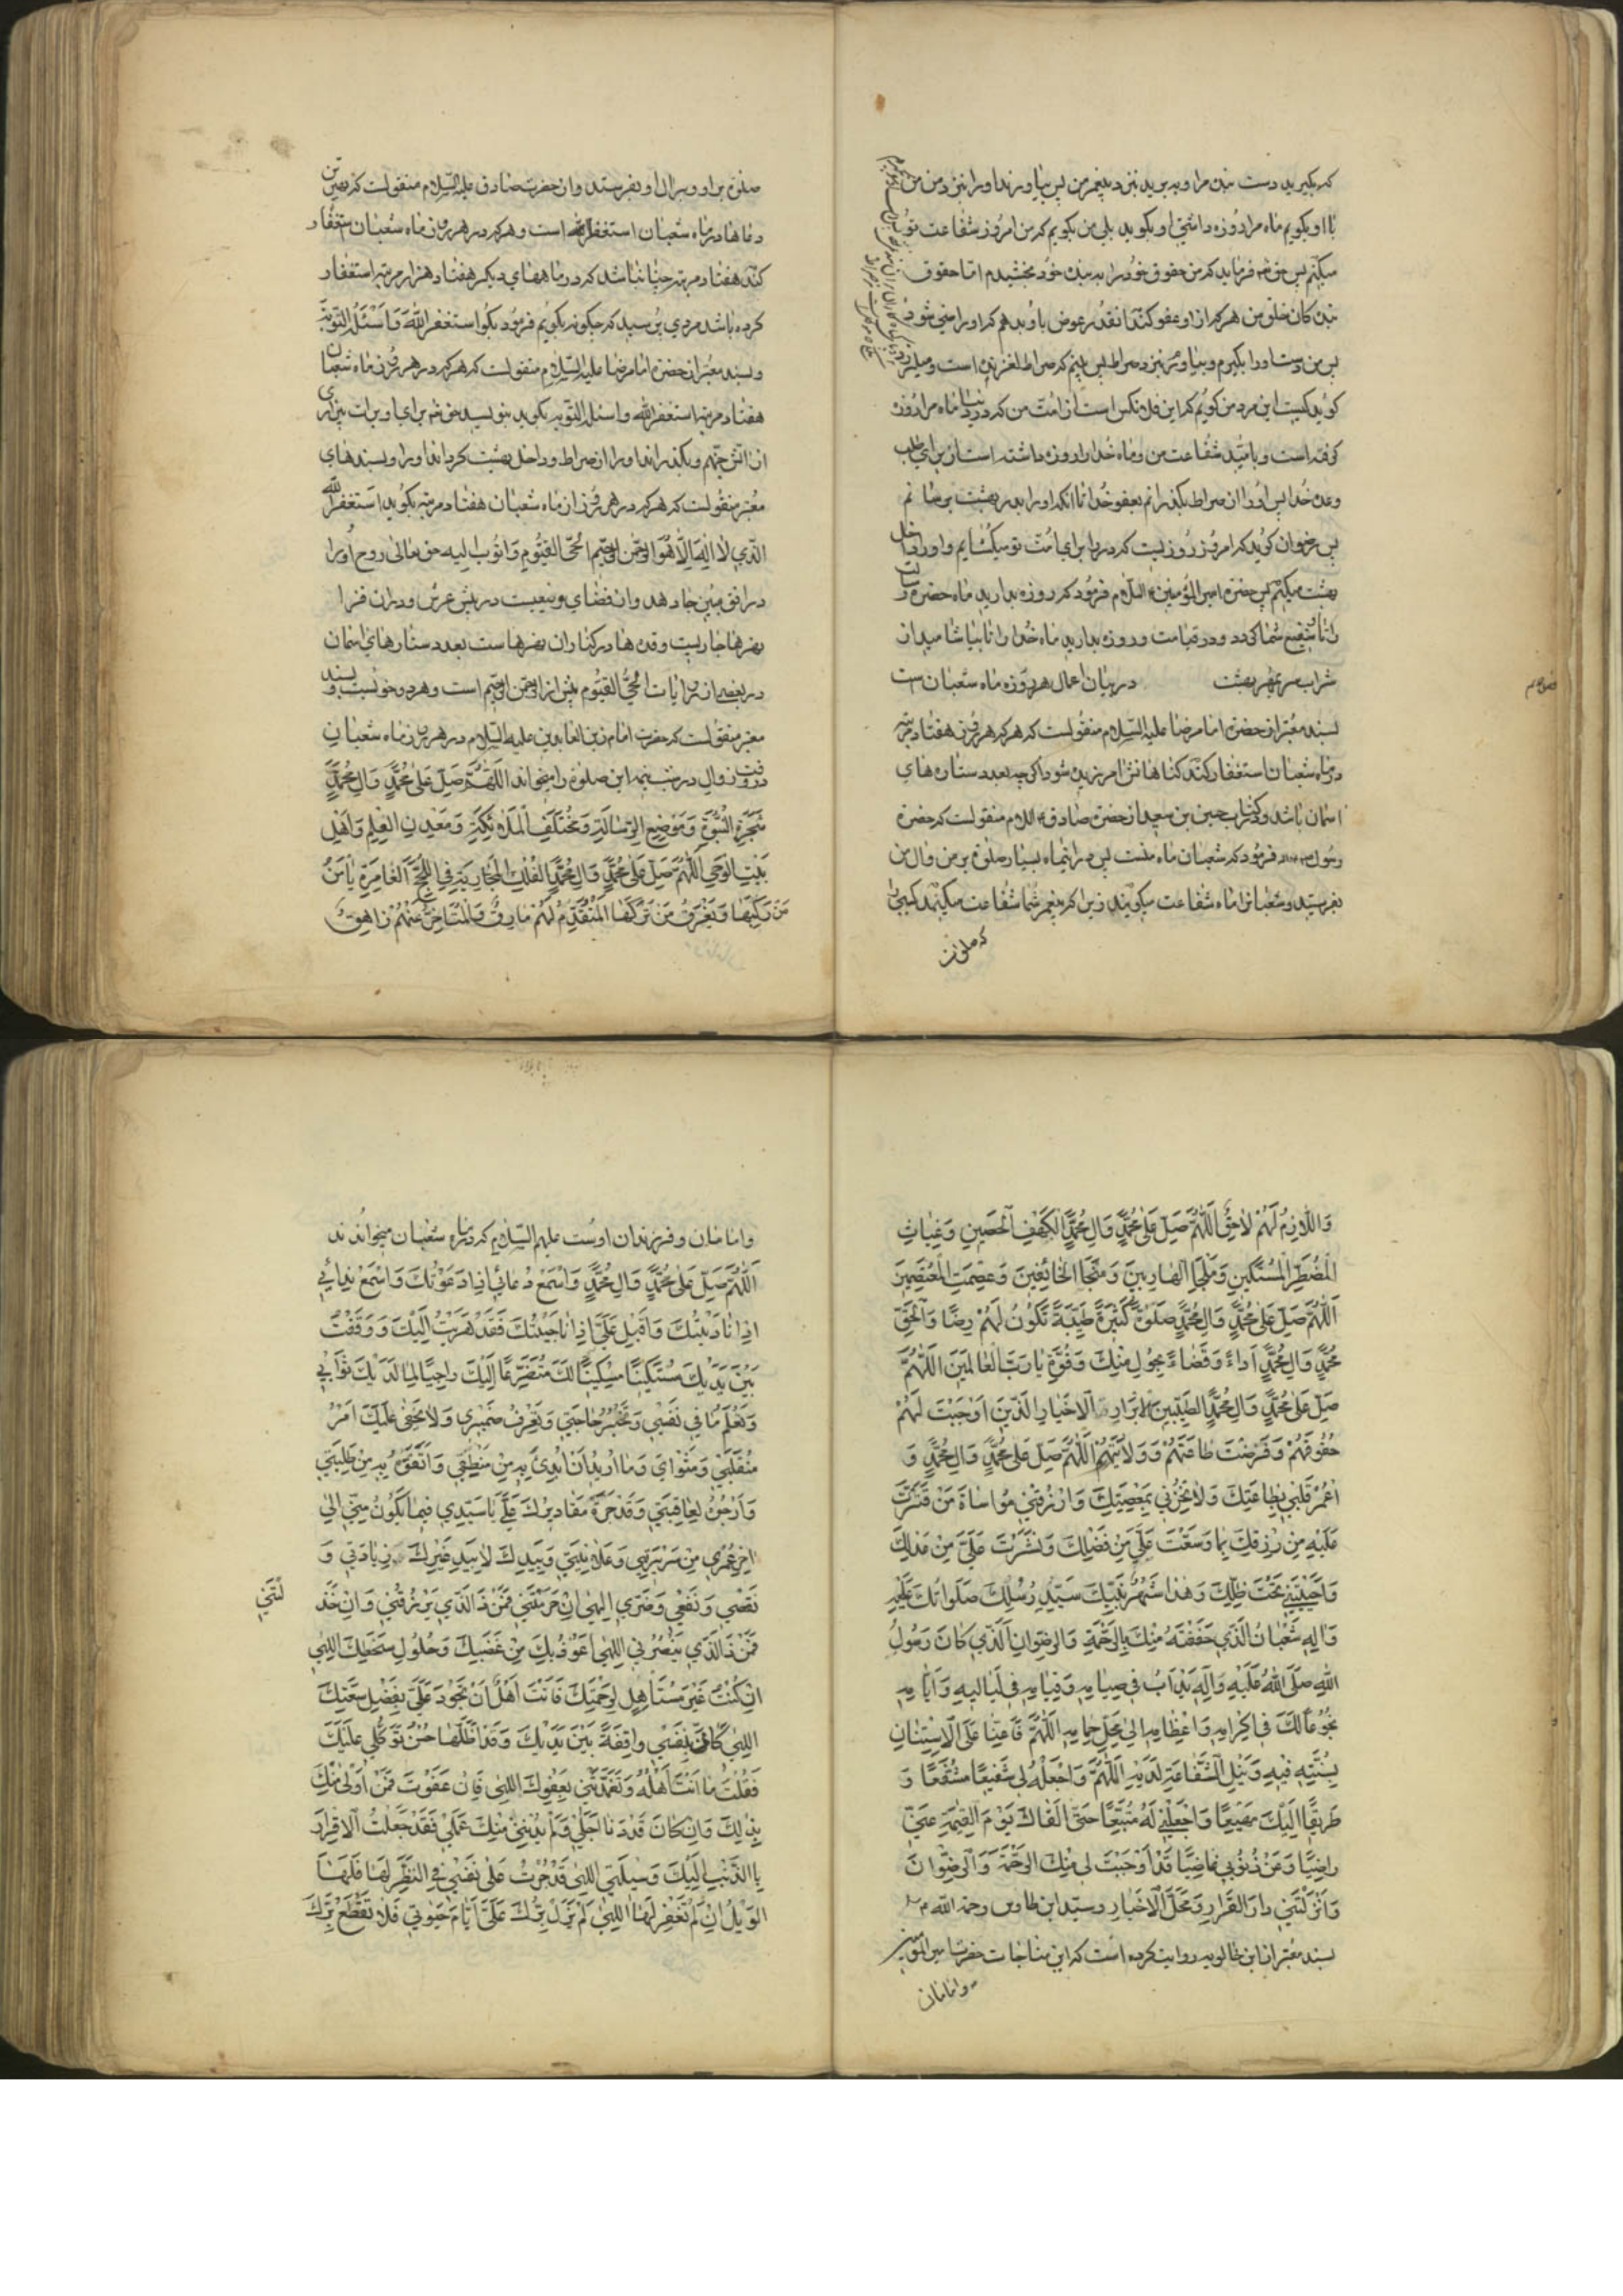 که بگیرید دست بنده مرا و ببرید نزد پیغمبر من پس بیاورند او را نزد من
با او بگویم ماه مرا روزه داشتی او بگوید بلی من بگویم که من امروز شفاعت تو
میکنم پس حق تع فرماید که من حقوق خود را به بنده خود بخشیدم اما حقوق
بندکان خلق من هر که از او عفو کند انقدر عوض باو بدهم که او راضی شود
پس من دست او را بگیرم و بیاورم نزد صراط پس بینم که صراط لغزنده است و میلرزد
کوید کیست این مرد من کویم که این فلانکس است از امت من که در دنیا ماه مرا روزه
گرفته است و بامید شفاعت من و ماه خدا را روزه داشته است از برای طلب
وعده خدا پس او را از صراط بگذرانم بعفو خدا تا انکه او را بدر بهشت برسانم
پس رضوان کوید که امروز روزیست که در را برای امت تو میکشایم و او را داخل
بهشت میکنم پس حضرة امیر المؤمنین ع فرمود که روزه بدارید ماه حضرة رسالت
را تا شفیع شما کردد در قیامت و روزه بدارید ماه خدا را تا بیاشامید از
شراب سر بمهر بهشت در بیان اعمال هر روزه ماه شعبان است
بسند معتبر از حضرة امام رضا علیه السلام منقولست که هر که هر روز هفتاد مرتبه
در ماه شعبان استغفار کند کناهانش امرزیده شود اگر چه بعدد ستاره های
اسمان باشد و در کتاب حسین بن سعید از حضرة صادق ع منقولست که حضرة
رسول فرمود که شعبان ماه منست پس در اینماه بسیار صلوة بر من و ال من
بفرستید و شعبان را ماه شفاعت میکویند زیرا که پیغمبر شما شفاعت میکند کسی را
که صلوة
صلوة بر او و بر ال او بفرستد و از حضرت صادق علیه السلام منقولست که بهترین
دعاها در ماه شعبان استغفر الله است و هر که در هر روز از ماه شعبان استغفار
کند هفتاد مرتبه چنان باشد که در ماههای دیکر هفتاد هزار مرتبه استغفار
کرده باشد مردی پرسید که چکونه بگویم فرمود بگو استغفر الله واسئله التوبة
و بسند معتبر از حضرة امام رضا علیه السلام منقولست که هر که در هر روز از ماه شعبان
هفتاد مرتبه استغفر الله و اسئله التوبه بکوید بنویسد حق تع برای او برات بیزاری
از اتش جهنم و بگذراند او را از صراط و داخل بهشت کرداند او را و بسندهای
معتبر منقولست که هر که در هر روز از ماه شعبان هفتاد مرتبه بکوید استغفر الله
الذی لا اله الا هو الرحمن الرحیم الحی القیوم واتوب الیه حق تعالی روح او را
در افق مبین جا دهد و ان فضای وسیعیست در پیش عرش و در ان فضا
نهرها جاریست و قدح ها در کنار ان نهرها هست بعدد ستارهای اسمان
در بعضی از روایات الحی القیوم پیش از الرحمن الرحیم است و هر دو خوبست و بسند
معتبر منقولست که حضرت امام زین العابدین علیه السلام در هر روز از ماه شعبان
در وقت زوال در شب نیمه این صلوة را میخواند اللهم صل علی محمد وال محمد
شجرة النبوة وموضع الرسالة ومختلف الملائکة ومعدن العلم واهل
بیت الوحی اللهم صل علی محمد وال محمد الفلک الجاریة فی اللجج الغامرة یامن
من رکبها ویغرق من ترکها المتقدم لهم مارق والمتاخر عنهم زاهق
واللازم لهم لاحق اللهم صل علی محمد وال محمد الکهف الحصین وغیاث
المضطر المستکین وملجا الهاربین ومنجا الخائفین وعصمت المعتصمین
اللهم صل علی محمد وال محمد صلوة کثیرة طیبة تکون لهم رضا ولحق
محمد وال محمد اداء وقضاء بحول منک وقوة یا رب العالمین اللهم
صل علی محمد وال محمد الطیبین الابرار الاخیار الذین اوجبت لهم
حقوقهم وفرضت طاعتهم وولایتهم اللهم صل علی محمد وال محمد و
اعمر قلبی بطاعتک ولا تخزنی بمعصیتک وارزقنی مواساة من قترت
علیه من رزقک بما وسعت علی من فضلک ونشرت علی من عدلک
واحییتنی تحت ظلک وهذا شهر نبیک سید رسلک صلواتک علیه
واله شعبان الذی حففته منک بالرحمة والرضوان الذی کان رسول
الله صلی الله علیه واله یداب فی صیامه وقیامه فی لیالیه وایامه
بخوعا لک فی اکرامه واعظامه الی محل حمامه اللهم فاعنا علی الاستنان
بسنته فیه ونیل الشفاعة لدیه اللهم واجعله لی شفیعا مشفعا و
طریقا الیک مهیعا واجعلنی له متبعا حتی القاک یوم القیمة عنی
راضیا وعن ذنوبی غاضیا قد اوجبت لی منک الرحمة والرضوان
وانزلتنی دار القرار ومحل الاخیار و سید ابن طاوس رحمة الله
بسند معتبر از ابن خالویه روایت کرده است که این مناجات حضرت امیر المؤمنین
وامامان
و امامان و فرزندان اوست علیهم السلام که در ماه شعبان میخواندند
اللهم صل علی محمد وال محمد واسمع دعائی اذا دعوتک واسمع ندائی
اذا نادیتک واقبل علی اذا ناجیتک فقد هربت الیک ووقفت
بین یدیک مستکینا مسکینا لک متضرعا الیک راجیا لما لدیک ثوابی
وتعلم ما فی نفسی وتخبر حاجتی وتعرف ضمیری ولا یخفی علیک امر
منقلبی ومثوای وما ارید ان ابدئ به من منطقی واتفوه به من طلبتی
وارجوه لعاقبتی وقد جرت مقادیرک علی یا سیدی فیما یکون منی الی
اخر عمری من سریرتی وعلانیتی وبیدک لا بید غیرک زیادتی و
نقصی ونفعی وضری الهی ان حرمتنی فمن ذا الذی یرزقنی وان خذ
لتنی
فمن ذا الذی ینصرنی الهی اعوذ بک من غضبک وحلول سخطک الهی
ان کنت غیر مستاهل لرحمتک فانت اهل ان تجود علی بفضل سعتک
الهی کانی بنفسی واقفة بین یدیک وقد اظلها حسن توکلی علیک
فقلت ما انت اهله وتغمدتنی بعفوک الهی فان عفوت فمن اولی منک
بذلک وان کان قد دنا اجلی ولم یدننی منک عملی فقد جعلت الاقرار
بالذنب الیک وسیلتی الهی قد جرت علی نفسی فی النظر لها فلها
الویل ان لم تغفر لها الهی لم یزل برک علی ایام حیوتی فلا تقطع برک